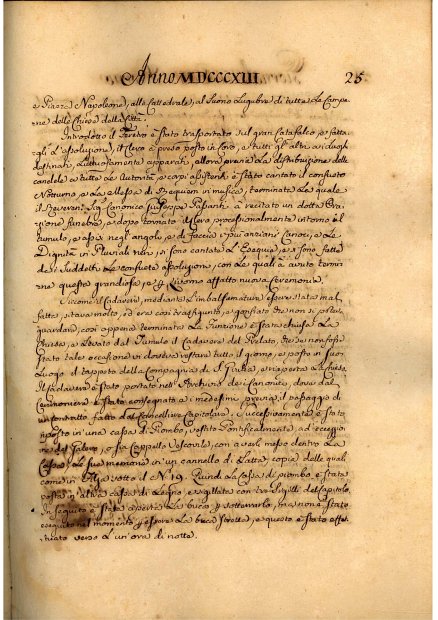 Anno MDCCCXIII. 25
e Piazza Napoleone, alla Cattedrale, al Suono Lugubre di tutte Le Campa-
ne delle Chiese della Città.
Introdotto il Feretro è stato trasportato sul gran Catafalco, e fatta-
gli L'assoluzione, il Clero à preso posto in Coro, e tutti gli altri a' luoghi
destinati, Luttuosamente apparati, allora previa La distribuzione delle
candele a tutte Le Autorità, e corpi assistenti è stato cantato il consueto
Notturno, e La Messa di Requiem in musica, terminata La quale
il Reverend. Sig. Canonico Giuseppe à recitato un dotta Ora-
zione funebre, e dopo tornato il Clero processionalmente intorno al
tumulo, e assisi negl'angoli, e di faccia i più anziani Canoci, e Le
Dignità in Pluviali neri, si sono cantate L'Esequie, e si sono fatte
dai Suddetti Le consuete assoluzioni, con Le quali à avuto termi-
ne questa grandiosa, e p. Livorno affatto nuova Ceremonia.
Siccome il Cadavere, mediante L'imbalsamatura essere stata mal
fatta, stava molto, ed era così trasfigurato, e gonfiato che non si poteva
guardare, così appena terminata La Funzione è stata chiusa La
Chiesa, e Levato dal Tumulo il Cadavere del Prelato, che se non fosse
Stata tale occasione vi doveva restare tutto il giorno, e posto in suo
Luogo il tappeto della Compagnia di S. Giulia, e riaperta La Chiesa.
Il Cadavere è stato portato nell'Archivio dei Canonici, dove dal
è stato consegnato a' medesimi previa il rogaggio di
un contratto fatto dal Cancelliere Capitolare. Successivamente è stato
riposto in una cassa di Piombo, vestito Pontificalmente, ad eccezzio-
ne del Galero, o sia Cappello Vescovile, con averli messo dentro La
Cassa Le sue memorie in un cannello di Latta, copia delle quali
come in Filza sotto il N. 19. Quindi La Cassa di piombo, è stata
posta in altra cassa di Legno, e sigillata con tre Sigilli del Capitolo.
In seguito è stata aperta La buca p. sotterrarlo, ma non è stato
eseguito nel momento p. essere La buca stretta, e questo è stato effet-
tuato verso L'un'ora di notte.